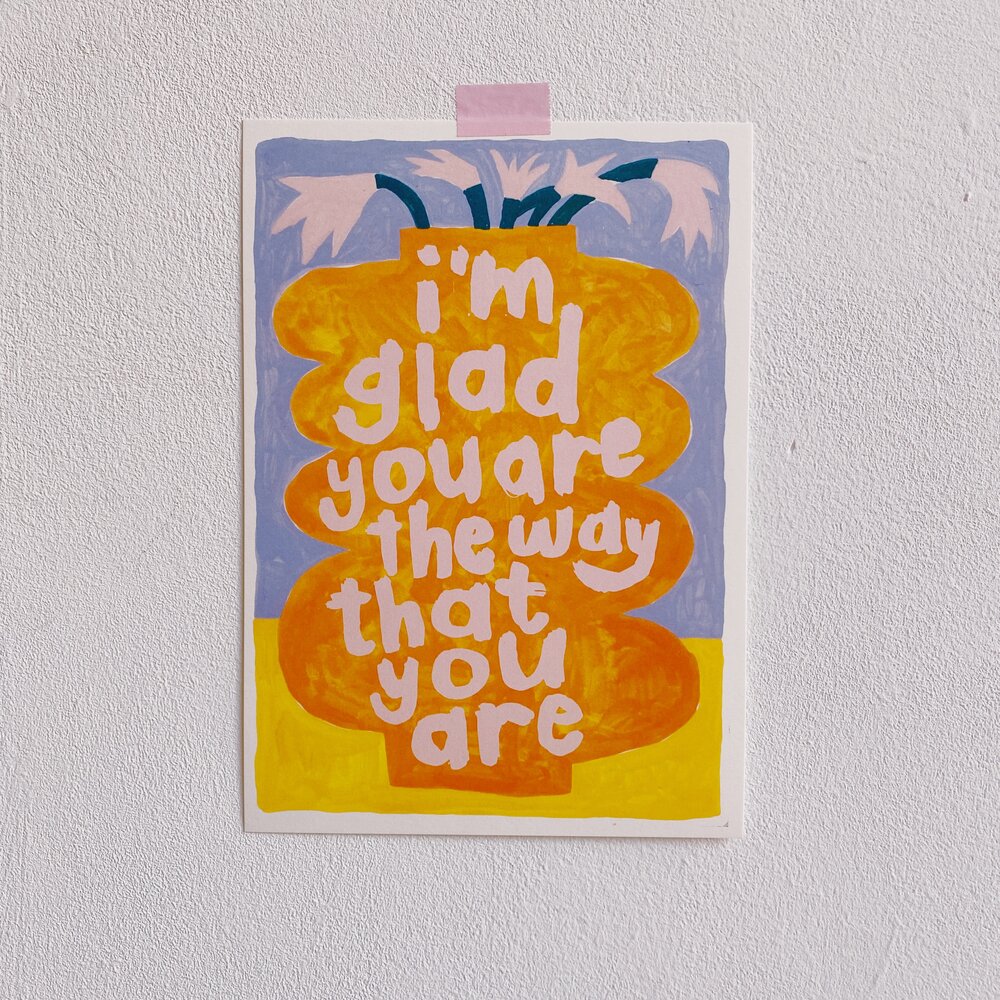 i'm
glad
you are
the way
that
you
are